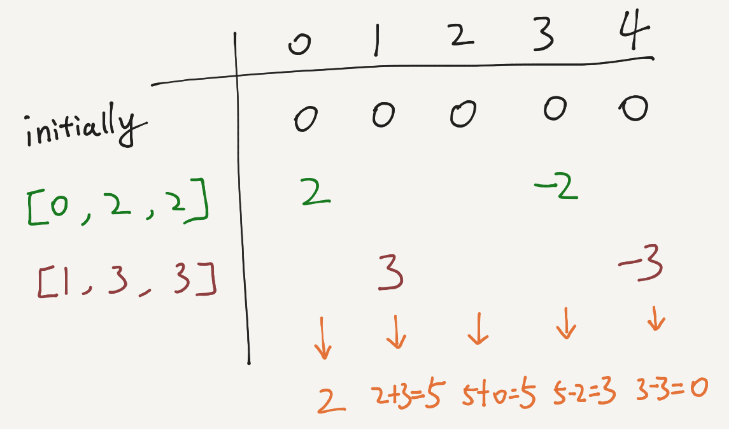 0 1 2 3 4
initially 0 0 0 0 0
[0, 2, 2] 2 -2
[1, 3, 3] 3 -3
↓ ↓ ↓ ↓ ↓
2 2+3=5 5+0=5 5-2=3 3-3=0